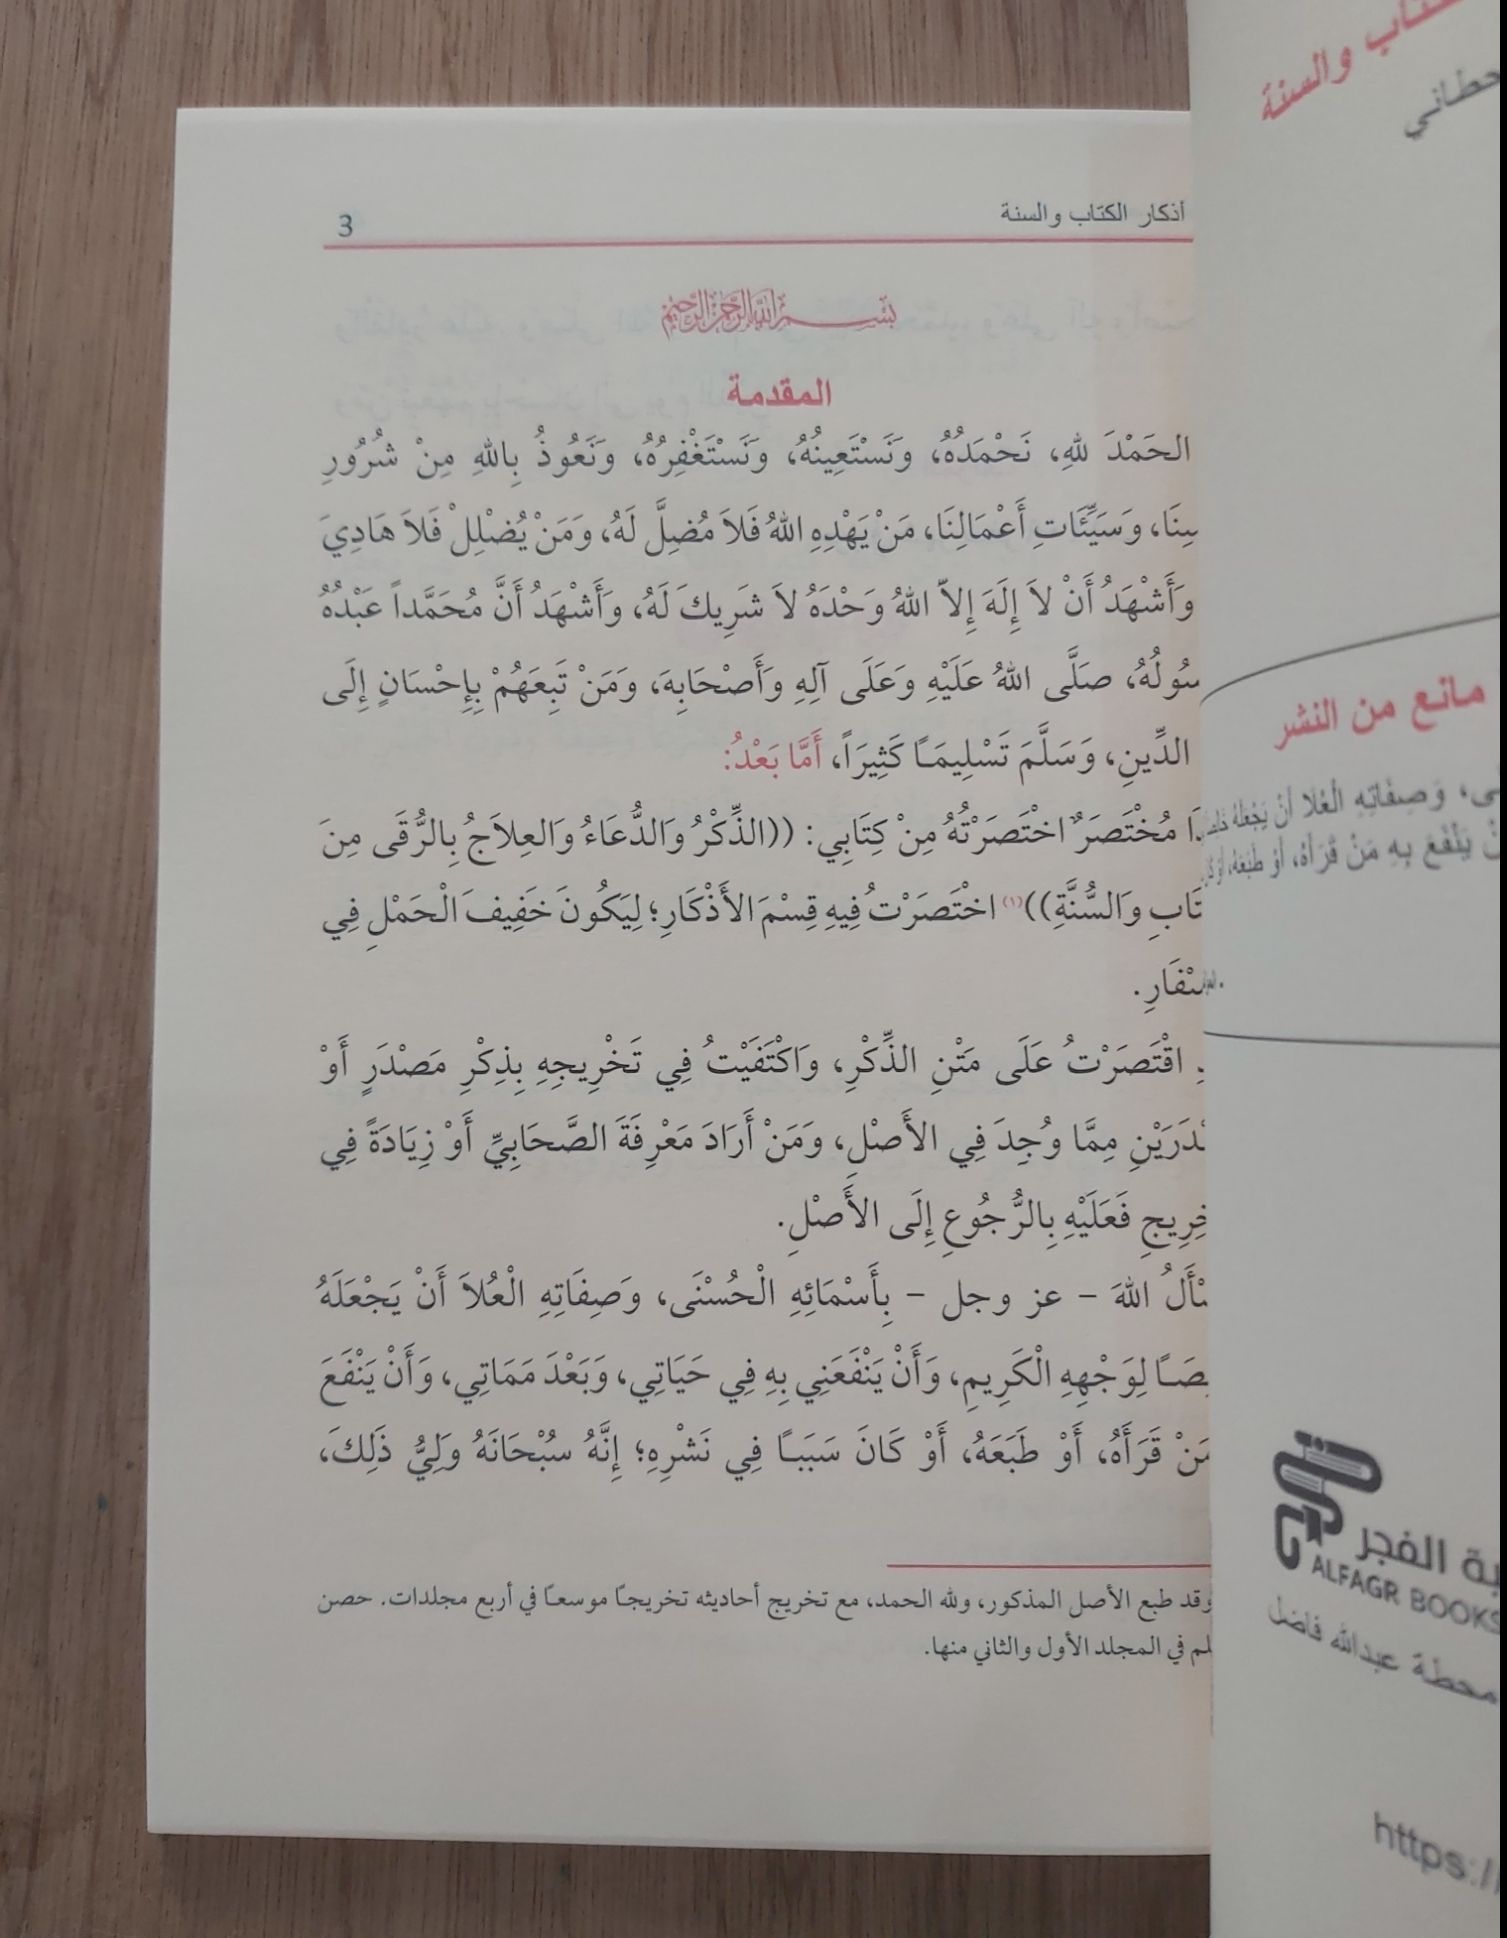 أذكار الكتاب والسنة
3
بسم الله الرحمن الرحيم
المقدمة
الحَمْدَ للهِ، نَحْمَدُهُ، وَنَسْتَعِينُهُ، وَنَسْتَغْفِرُهُ، وَنَعُوذُ بِاللهِ مِنْ شُرُورِ
سِنَا، وَسَيِّئَاتِ أَعْمَالِنَا، مَنْ يَهْدِهِ اللهُ فَلاَ مُضِلَّ لَهُ، وَمَنْ يُضْلِلْ فَلاَ هَادِيَ
وَأَشْهَدُ أَنْ لاَ إِلَهَ إِلاَّ اللهُ وَحْدَهُ لاَ شَرِيكَ لَهُ، وَأَشْهَدُ أَنَّ مُحَمَّداً عَبْدُهُ
سُولُهُ، صَلَّى اللهُ عَلَيْهِ وَعَلَى آلِهِ وَأَصْحَابِهَ، وَمَنْ تَبِعَهُمْ بِإِحْسَانٍ إِلَى
الدِّينِ، وَسَلَّمَ تَسْلِيمَاً كَثِيرَاً، أَمَّا بَعْدُ:
ذَا مُخْتَصَرٌ اخْتَصَرْتُهُ مِنْ كِتَابِي: ((الذِّكْرُ وَالدُّعَاءُ وَالعِلاَجُ بِالرُّقَى مِنَ
تَابِ وَالسُّنَّةِ))(١) اخْتَصَرْتُ فِيهِ قِسْمَ الأَذْكَارِ؛ لِيَكُونَ خَفِيفَ الْحَمْلِ فِي
سْفَارِ.
دِ اقْتَصَرْتُ عَلَى مَتْنِ الذِّكْرِ، وَاكْتَفَيْتُ فِي تَخْرِيجِهِ بِذِكْرِ مَصْدَرٍ أَوْ
ـدَرَيْنِ مِمَّا وُجِدَ فِي الأَصْلِ، وَمَنْ أَرَادَ مَعْرِفَةَ الصَّحَابِيِّ أَوْ زِيَادَةً فِي
خْرِيجِ فَعَلَيْهِ بِالرُّجُوعِ إِلَى الأَصْلِ.
سْأَلُ اللهَ - عز وجل - بِأَسْمَائِهِ الْحُسْنَى، وَصِفَاتِهِ الْعُلاَ أَنْ يَجْعَلَهُ
ـصَاً لِوَجْهِهِ الْكَرِيمِ، وَأَنْ يَنْفَعَنِي بِهِ فِي حَيَاتِي، وَبَعْدَ مَمَاتِي، وَأَنْ يَنْفَعَ
مَنْ قَرَأَهُ، أَوْ طَبَعَهُ، أَوْ كَانَ سَبَبَاً فِي نَشْرِهِ؛ إِنَّهُ سُبْحَانَهُ وَلِيُّ ذَلِكَ،
وقد طبع الأصل المذكور، ولله الحمد، مع تخريج أحاديثه تخريجاً موسعاً في أربع مجلدات. حصن
لم في المجلد الأول والثاني منها.
كتاب والسنة
حطاني
مانع من النشر
ى، وَصِفَاتِهِ الْعُلَا أَنْ يَجْعَلَهُ
نْ يَنْفَعَ بِهِ مَنْ قَرَأَهُ، أَوْ طَبَعَهُ،
بة الفجر
ALFAGR BOOKS
محطة عبدالله فاضل
https:/